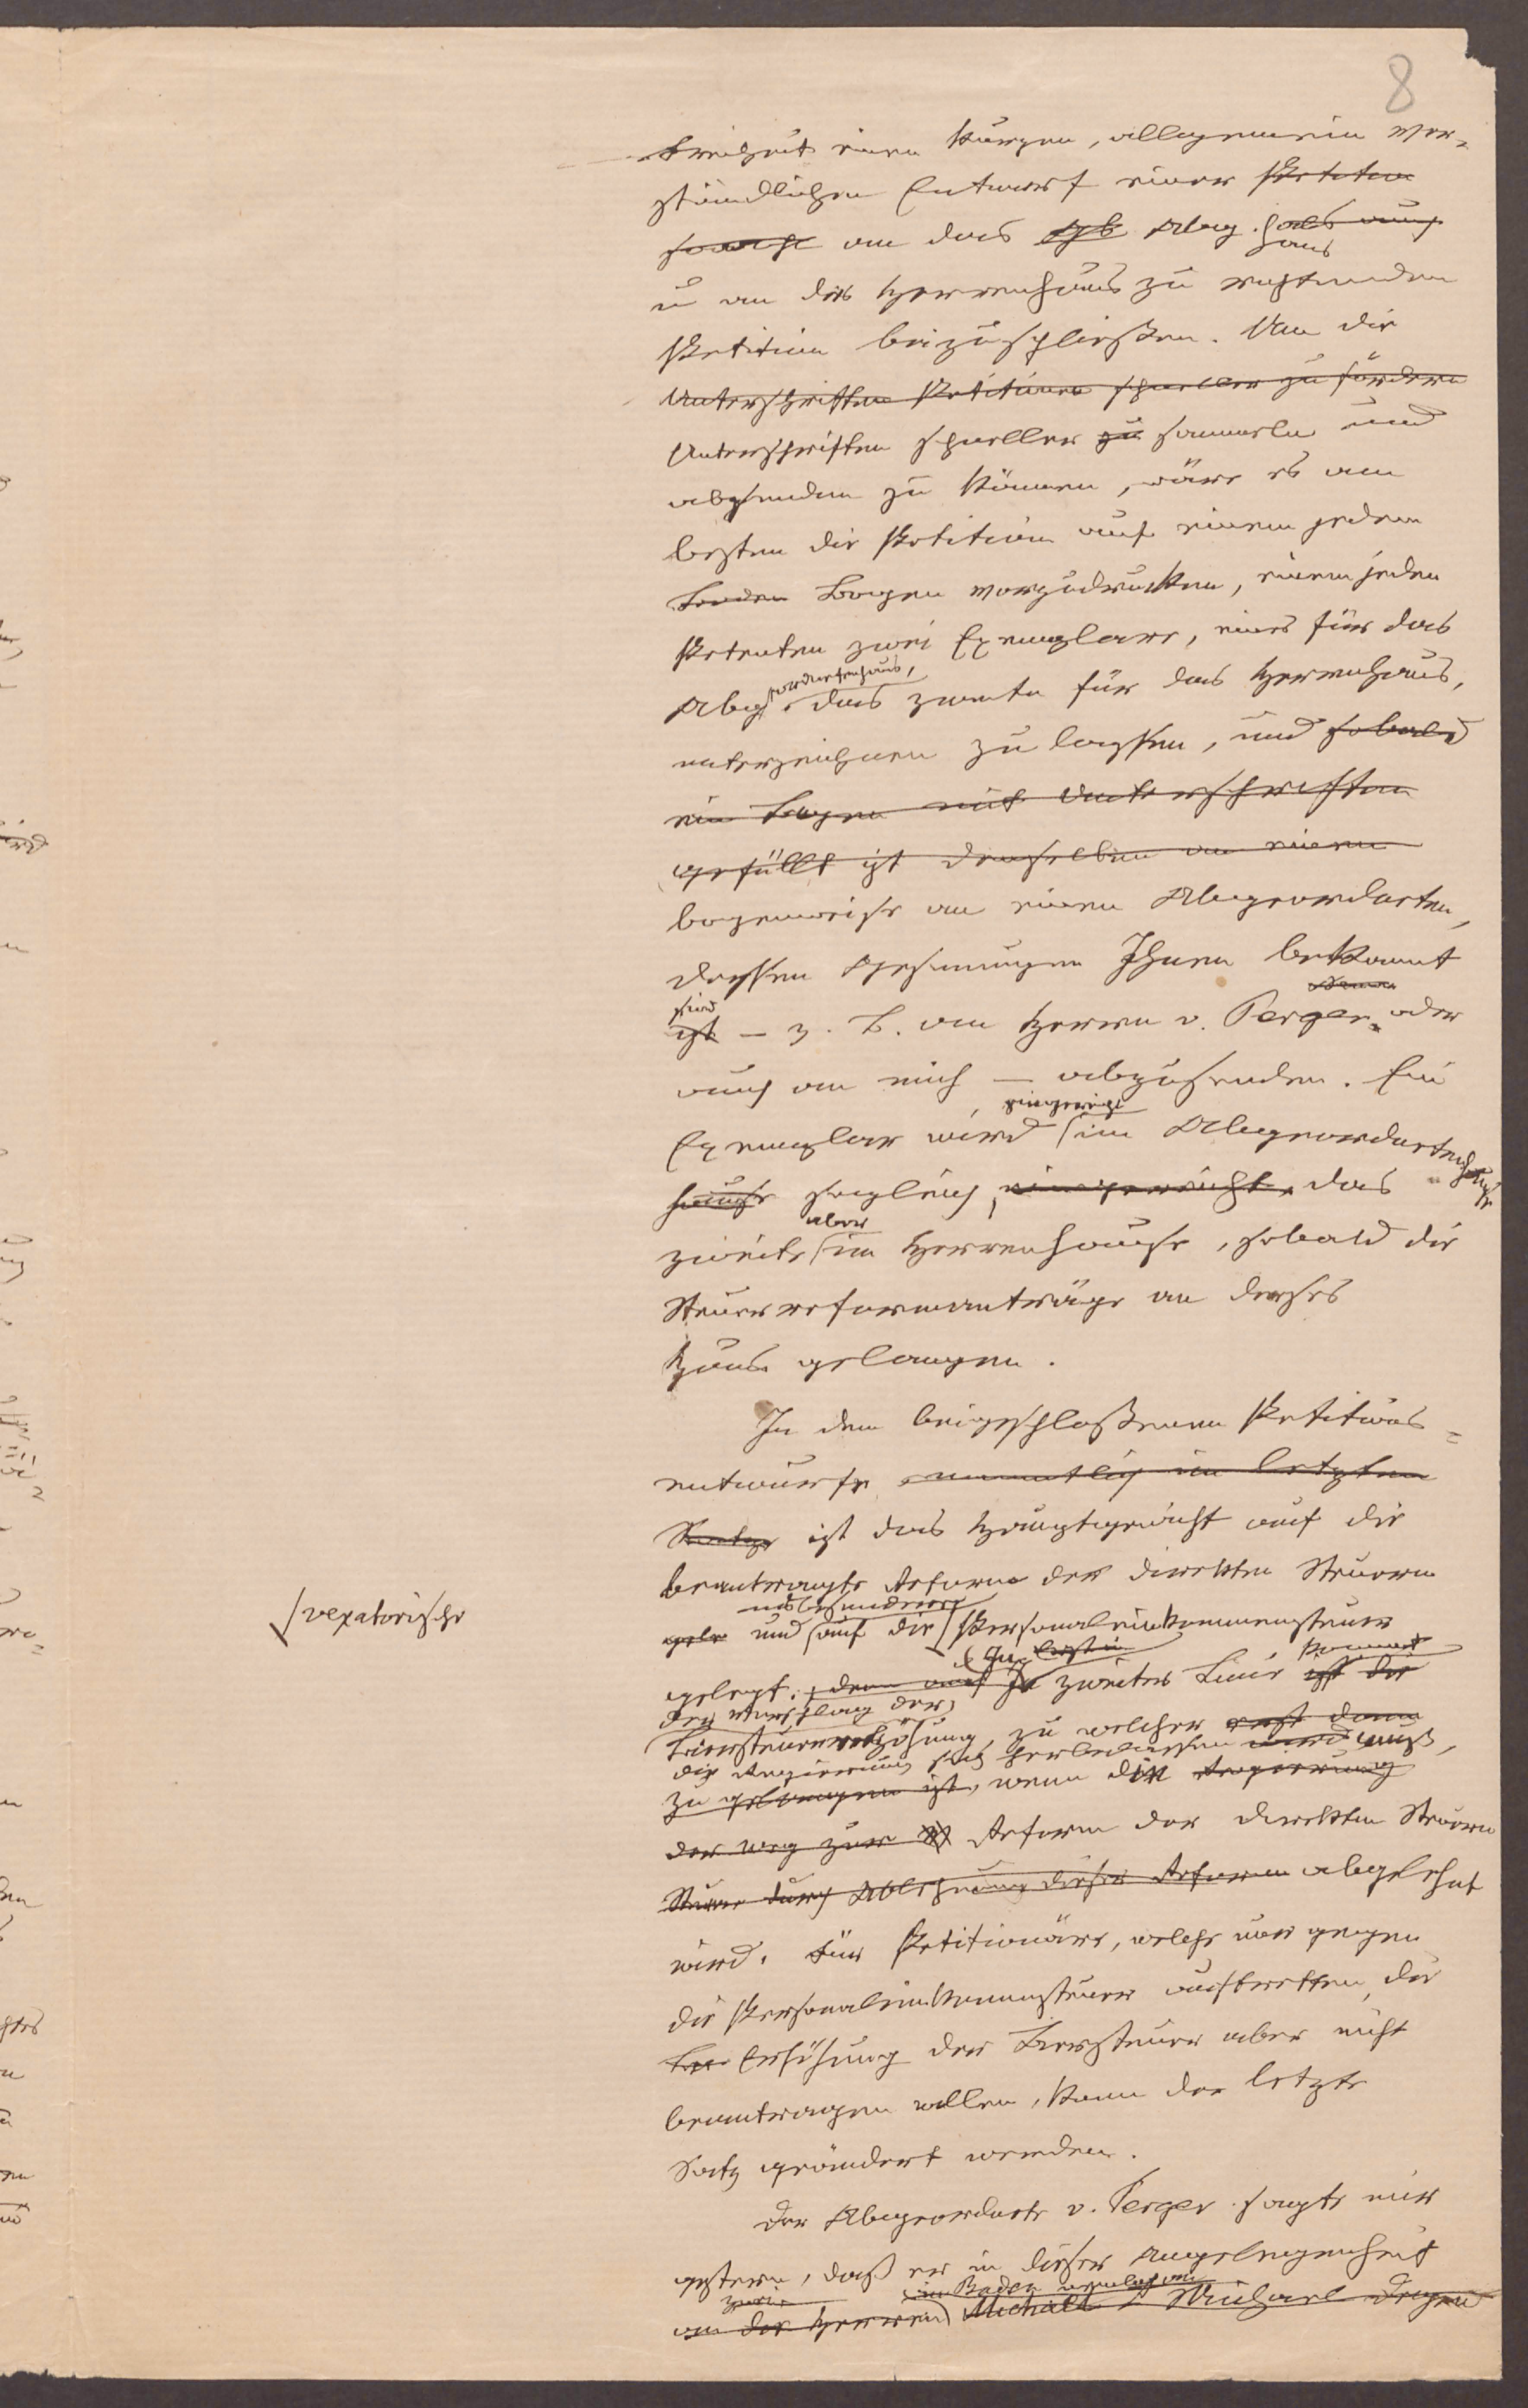 8
Freiheit einen kurzen, allgemein ver-
ständlichen Entwurf einer Petition
an das Abg. haus
u an das Herrenhaus zu richtenden
Petition beizuschließen. Um die
Unterschriften Petitionen schneller zu fördern
Unterschriften schneller zu sammeln und
absenden zu können, wäre es am
besten die Petition auf einem jeden
Bogen vorzudrucken, einem jeden
Petenten zwei Exemplare, eines für das
Abgeordnetenhaus, das zweite für das Herrenhaus,
unterzeichnen zu lassen, und sobald
ein Bogen mit Unterschriften
gefüllt ist denselben an einen
bogenweise an einen Abgeordneten,
dessen Gesinnungen Ihnen bekannt
sind
ist – z. B. an Herrn v. Perger oder
auch an mich – abzusenden. Ein
eingereicht
Exemplar wird im Abgeordnetenhause
hause sogleich eingereicht, das
aber
zweite im Herrenhause, sobald die
Steuerreformanträge an dieses
Haus gelangen.
In dem beigeschloßenen Petitions-
entwurfe namentlich im letzten
Satze ist das Hauptgewicht auf die
beantragte Reform der direkten Steuern
insbesondere
und auf die Personaleinkommensteuer
vexatorische
gelegt; zweiter Linie ist die
kommt
der Vorschlag der
Biersteuererhöhung, zu welcher erst dann
die Regierung sich herbeilassen muß,
zu gelangen ist, wenn die Regierung
der Weg zur Reform der direkten Steuern
Steuer durch Ablehnung dieser Reform abgelehnt
wird. Für Petitionäre, welche nur gegen
die Personaleinkommensteuer auftretten, die
Erhöhung der Biersteuer aber nicht
beantragen wollen, kann der letzte
Satz geändert werden.
Der Abgeordnete v. Perger sagte mir
gestern, daß er in dieser Angelegenheit
zwei in Baden
an die Herren Michael